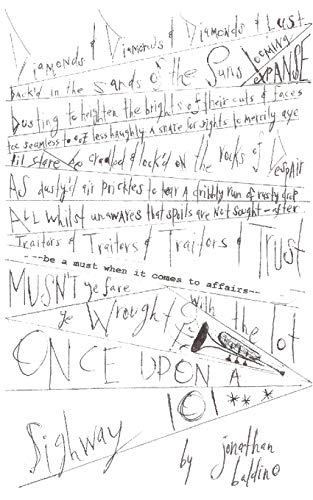 Diamonds & Diamonds & Diamonds & Lust
back'd in the Sands o' the Suns looming EXPANSE
Dusting to heighten the brights of their cuts & faces
too seamless to of less haughty a snare for sights to merrily aye
'til stare so and lock'd on the rocks of Despair
AS dusty'd air prickles to tear A dribbly run of rusty drip
ALL whilst unawares that spoils are Not sought-after
Traitors & Traitors & Traitors & TRUST
---be a must when it comes to affairs--
MUSN'T ye fare
ye Wrought With the lot
ONCE UPON A
101***
Sighway
by jonathan
baldino